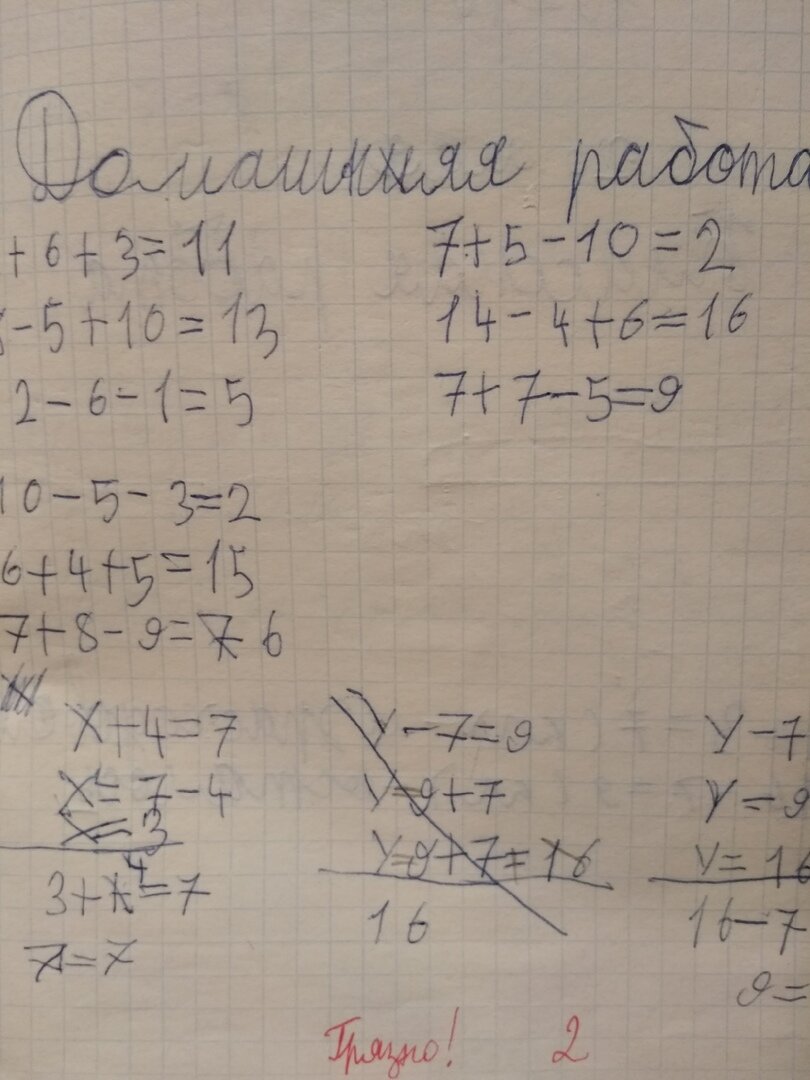 Домашняя работа
+ 6 + 3 = 11
7 + 5 - 10 = 2
- 5 + 10 = 13
14 - 4 + 6 = 16
2 - 6 - 1 = 5
7 + 7 - 5 = 9
10 - 5 - 3 = 2
6 + 4 + 5 = 15
7 + 8 - 9 = 7 6
x + 4 = 7
y - 7 = 9
y - 7
x = 7 - 4
y = 9 + 7
y = 9
x = 3
y = 9 + 7 = 16
y = 16
3 + 4 = 7
16
16 - 7
7 = 7
9 =
Грязно! 2